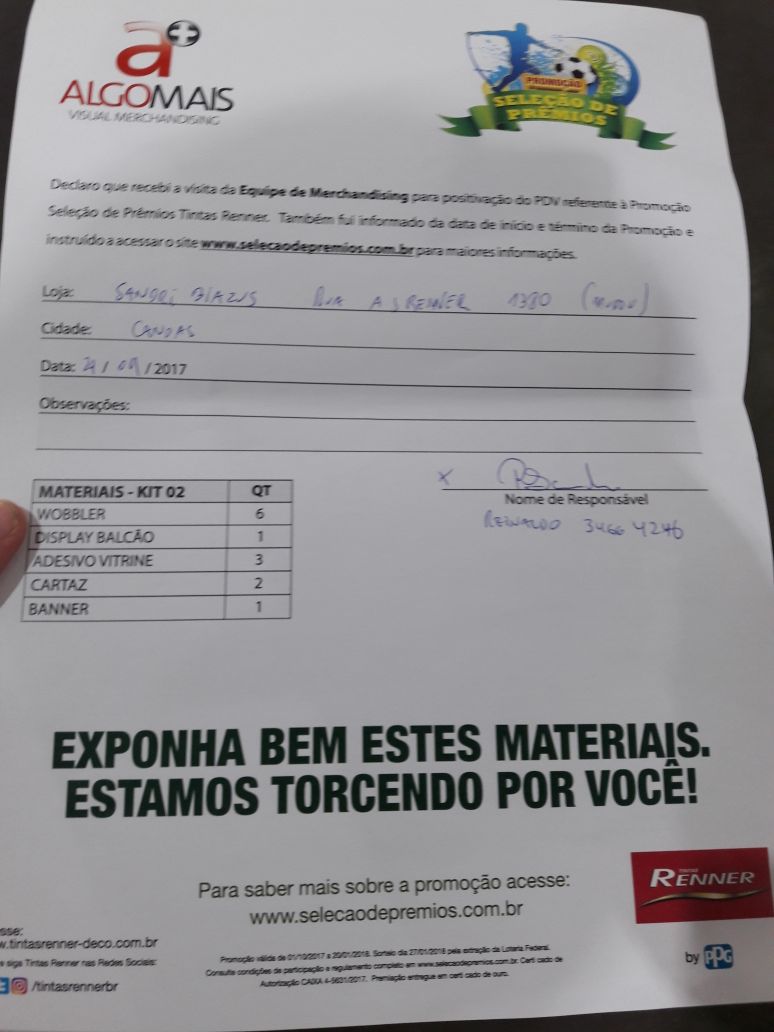 a+
ALGOMAIS
VISUAL MERCHANDISING
PROMOÇÃO
SELEÇÃO DE
PRÊMIOS
Declaro que recebi a visita da Equipe de Merchandising para positivação do PDV referente à Promoção
Seleção de Prêmios Tintas Renner. Também fui informado da data de início e término da Promoção e
instruído a acessar o site www.selecaodepremios.com.br para maiores informações.
Loja: SANDRI BIAZUS RUA A J RENNER 1380
Cidade: CANOAS
Data: 29 / 09 / 2017
Observações:
MATERIAIS - KIT 02 QT
WOBBLER 6
DISPLAY BALCÃO 1
ADESIVO VITRINE 3
CARTAZ 2
BANNER 1
X
Nome de Responsável
REINALDO 3466 4246
EXPONHA BEM ESTES MATERIAIS.
ESTAMOS TORCENDO POR VOCÊ!
Para saber mais sobre a promoção acesse:
www.selecaodepremios.com.br
TINTAS
RENNER
by PPG
sse:
w.tintasrenner-deco.com.br
e siga Tintas Renner nas Redes Sociais:
/tintasrennerbr
Promoção válida de 01/10/2017 a 20/01/2018. Sorteio dia 27/01/2018 pela extração da Loteria Federal.
Consulte condições de participação e regulamento completo em www.selecaodepremios.com.br. Certi cado de
Autorização CAIXA 4-5631/2017. Premiação entregue em certi cado de ouro.